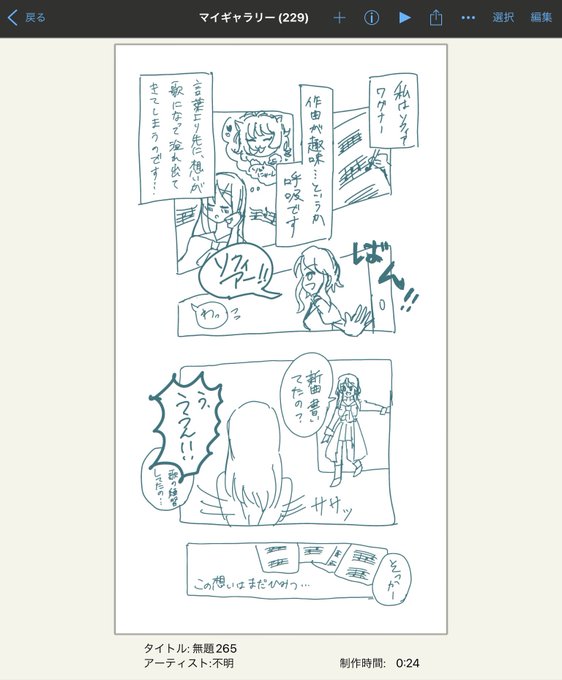 戻る
マイギャラリー (229)
選択
編集
私はソフィ
ワグナー
作曲が趣味…というか
呼吸です
言葉より先に、想いが
歌になって溢れ出て
きてしまうのです…
ばん!!
ソフィ
アー!!
わっ
新曲書い
てたの?
う、
ううん!!
歌の練習
してたの…
ササッ
そっかー
この想いはまだひみつ…
タイトル: 無題265
アーティスト:不明
制作時間: 0:24